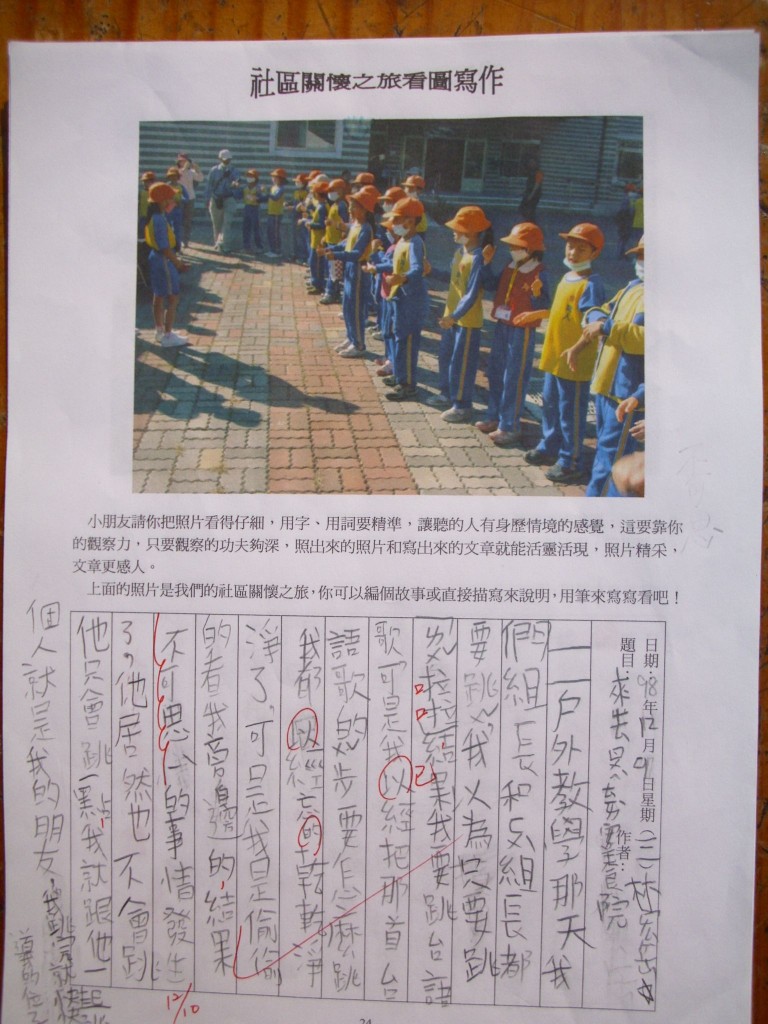 社區關懷之旅看圖寫作
小朋友請你把照片看得仔細，用字、用詞要精準，讓聽的人有身歷情境的感覺，這要靠你
的觀察力，只要觀察的功夫夠深，照出來的照片和寫出來的文章就能活靈活現，照片精采，
文章更感人。
上面的照片是我們的社區關懷之旅，你可以編個故事或直接描寫來說明，用筆來寫寫看吧！
日期：98年12月9日星期(三)
題目：
作者：林
戶外教學那天我
們組長和 組長都
要跳 我以為只要跳
啦啦結果我要跳台語
歌可是我以經把那首台
語歌的 步要怎麼跳
我都以經忘的乾乾淨
淨了，可是我是偷偷
的看我旁邊的結果
不可思 的事情發生
了，他居然也不會跳
他只會跳一點點我就跟他一起跳
個人就是我的朋友，我 跳完就快快
已
12/10
24